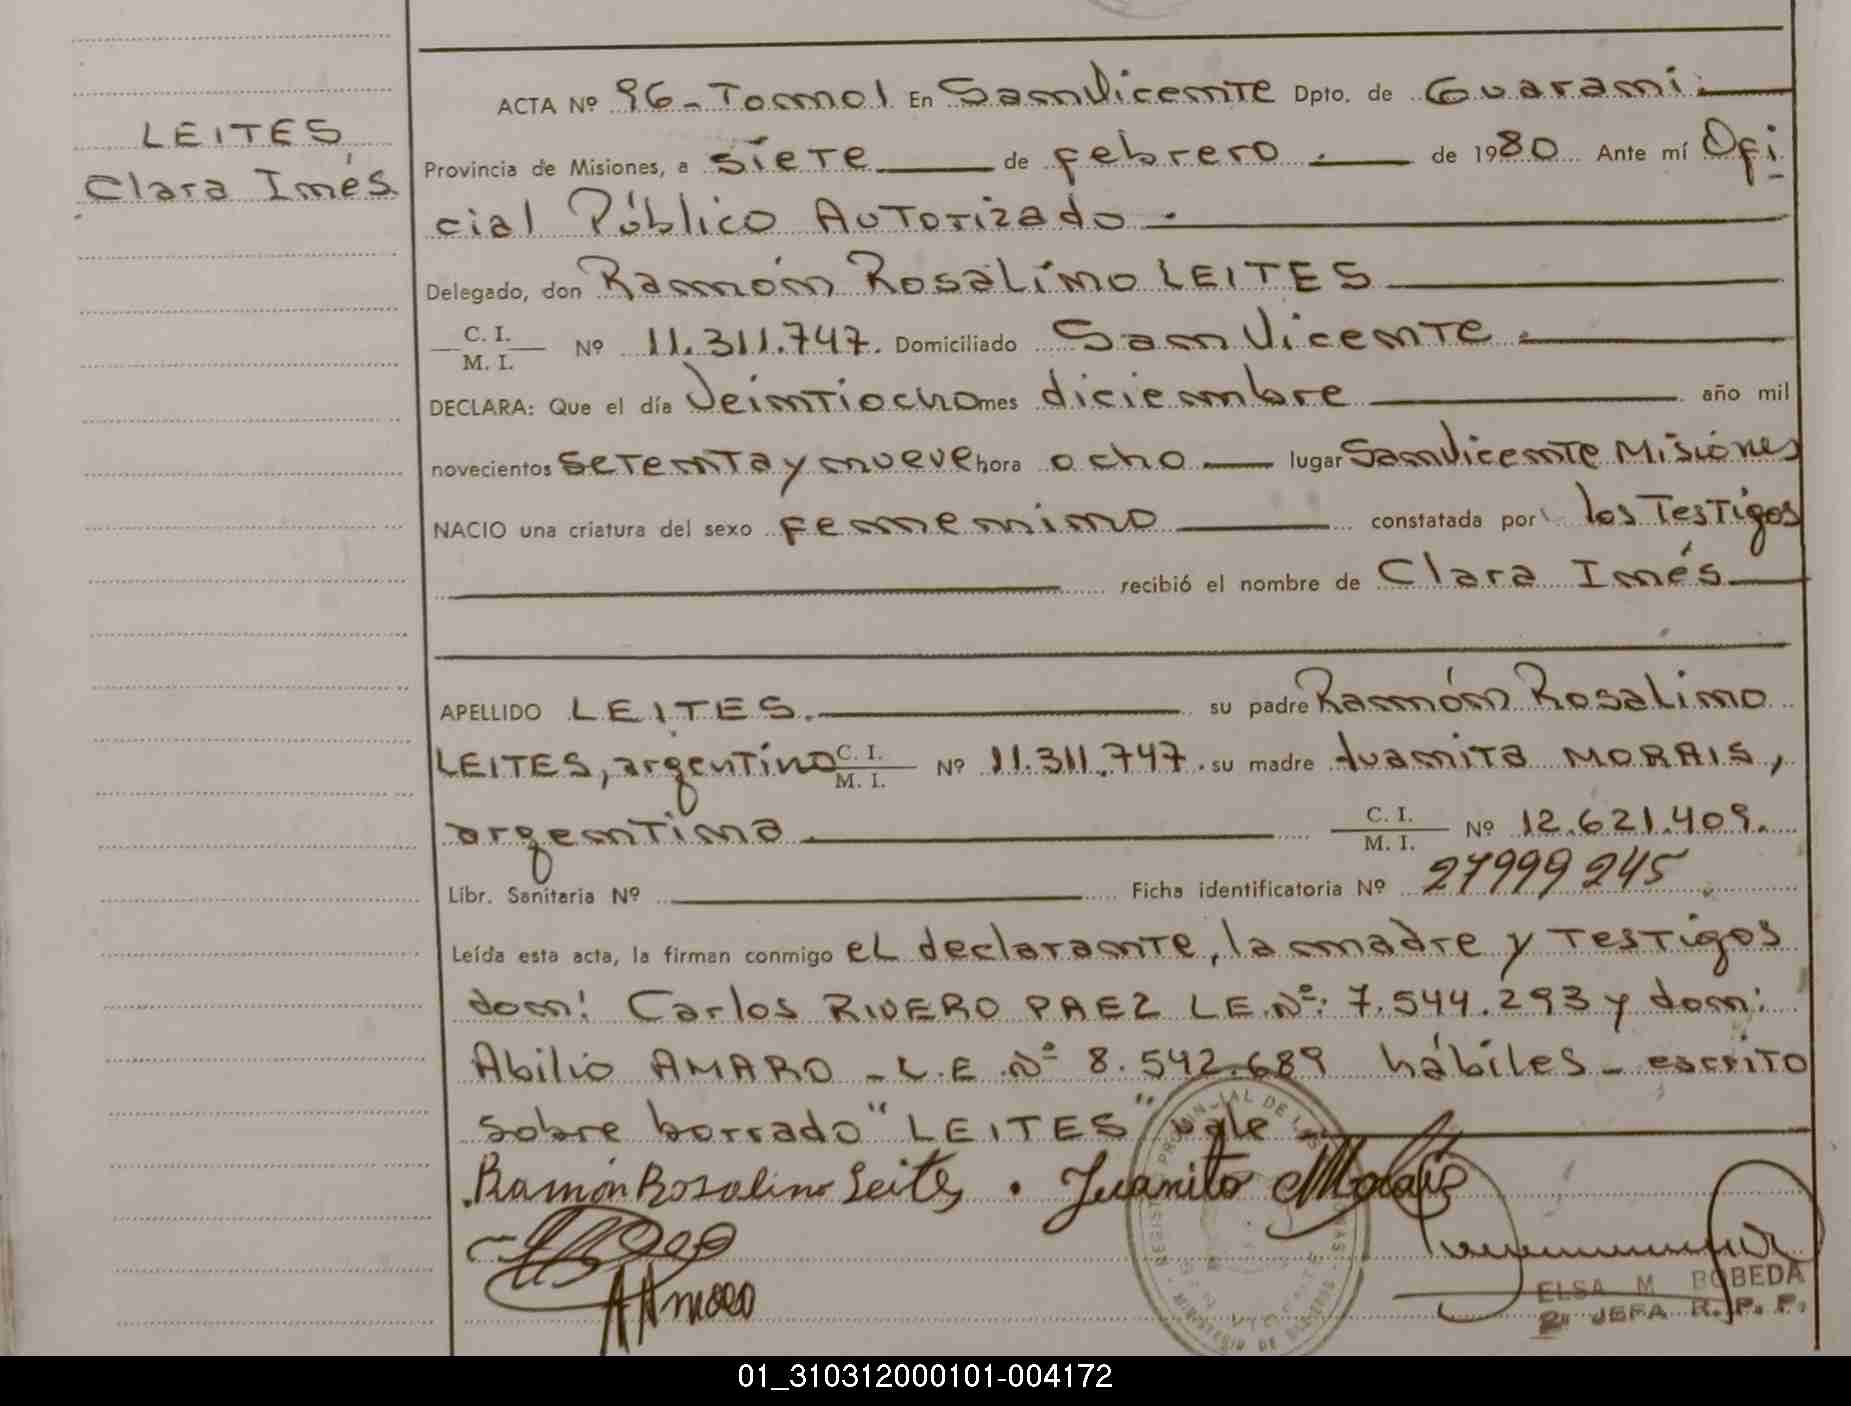 LEITES
Clara Inés
ACTA Nº 96 - Tomo I En San Vicente Dpto. de Guaraní.
Provincia de Misiones, a siete de febrero. de 1980 Ante mí Ofi
cial Público Autorizado.
Delegado, don Ramón Rosalino LEITES
C. I.
M. I. Nº 11.311.747. Domiciliado San Vicente.
DECLARA: Que el día Veintiocho mes diciembre año mil
novecientos setenta y nueve hora ocho lugar San Vicente Misiones
NACIO una criatura del sexo femenino constatada por los Testigos
recibió el nombre de Clara Inés
APELLIDO LEITES. su padre Ramón Rosalino
LEITES, argentino C. I.
M. I. Nº 11.311.747. su madre Juanita MORAIS,
argentina C. I.
M. I. Nº 12.621.409.
Libr. Sanitaria Nº Ficha identificatoria Nº 27999245
Leída esta acta, la firman conmigo el declarante, la madre y Testigos
don: Carlos RIVERO PAEZ L E. Nº: 7.544.293 y don:
Abilio AMARO - L. E. Nº 8.542.689 hábiles - escrito
sobre borrado "LEITES" vale
Ramón Rosalino Leites. Juanita Morais
A Amaro
ELSA M BOBEDA
2ª JEFA R. P. P.
01_310312000101-004172